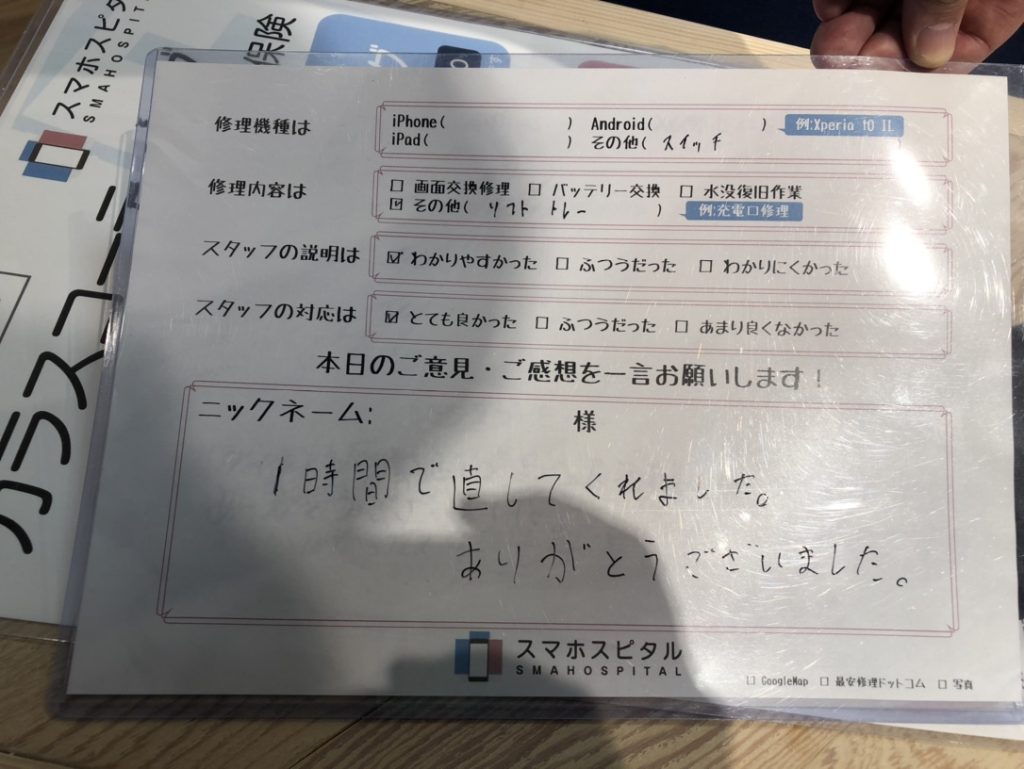 スマホスピタル
SMAHOSPITAL
保険
ガラスコ
修理機種は
iPhone( ) Android( ) 例:Xperia 10 II
iPad( ) その他( スイッチ )
修理内容は
□ 画面交換修理 □ バッテリー交換 □ 水没復旧作業
☑ その他( ソフト トレー ) 例:充電口修理
スタッフの説明は
☑ わかりやすかった □ ふつうだった □ わかりにくかった
スタッフの対応は
☑ とても良かった □ ふつうだった □ あまり良くなかった
本日のご意見・ご感想を一言お願いします!
ニックネーム: 様
1時間で直してくれました。
ありがとうございました。
スマホスピタル
SMAHOSPITAL
□ GoogleMap □ 最安修理ドットコム □ 写真